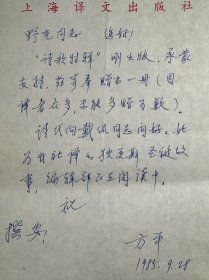 上海译文出版社
野莵同志 您好!
“诗歌特辑”刚出版,承蒙
支持,兹寄奉赠书一册(因
译者众多,未能多赠为歉)。
请代向戴侃同志问好。她
为我社译的狄更斯圣诞故
事,编辑部正在阅读中。
祝
撰安!
方平
1985.9.28